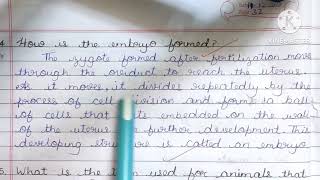 How is the embryo formed?
The zygote formed after fertilization move
through the oviduct to reach the uterus
As it moves, it divides repeatedly by the
process of cell division and forms a balls
of cells that embedded on the walls
of the uterus further development. This
developing structure is called an embryo
5. What is the term used for animals that